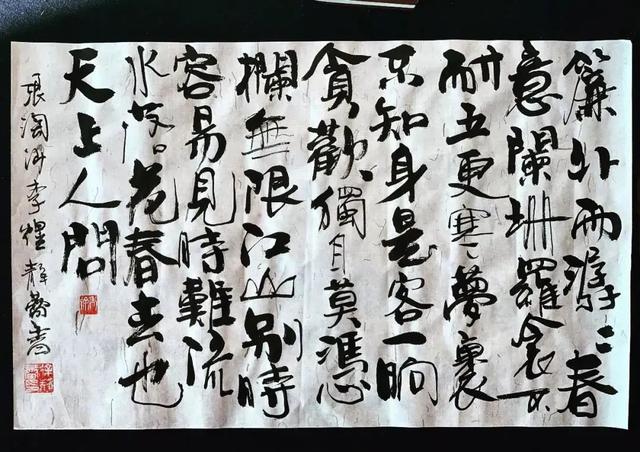 簾外雨潺々春
意闌珊羅衾不
耐五更寒夢裏
不知身是客一晌
貪歡獨自莫憑
欄無限江山别時
容易見時難流
水落花春去也
天上人間
浪淘沙李煜 靜齋書